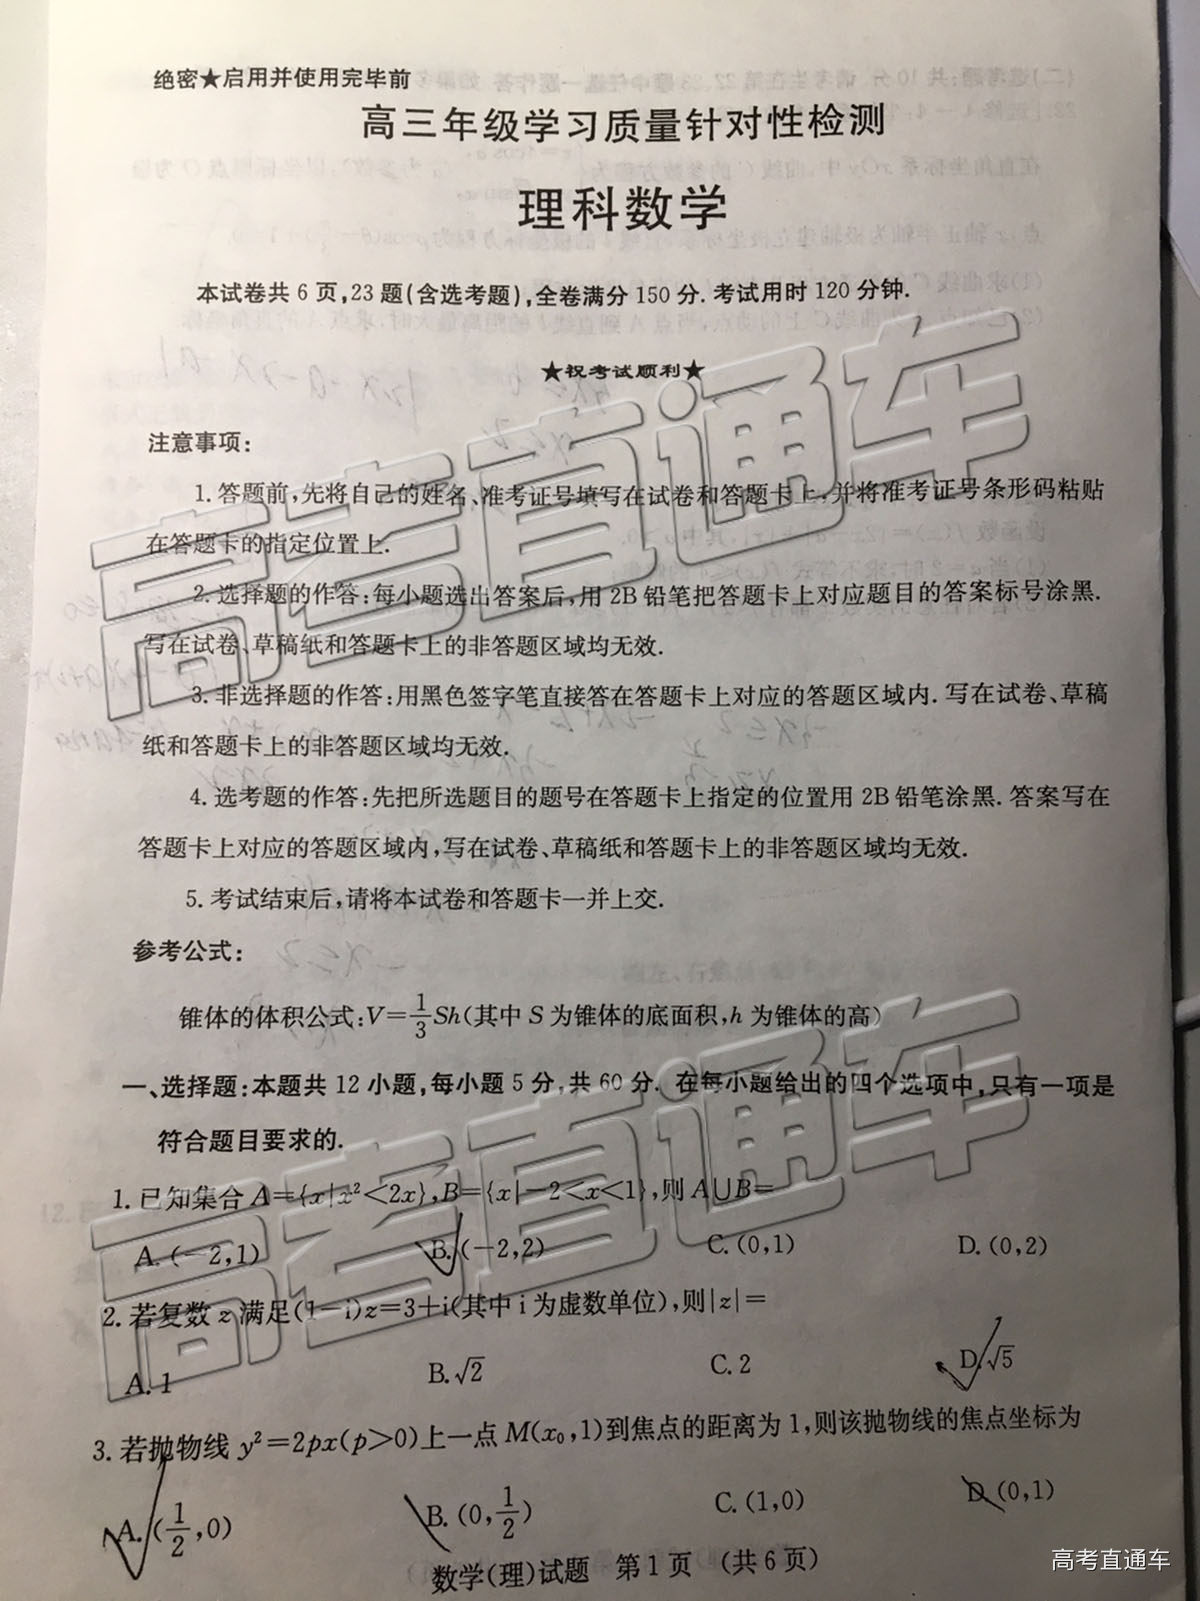 绝密★启用并使用完毕前
高三年级学习质量针对性检测
理科数学
本试卷共6页,23题(含选考题),全卷满分150分.考试用时120分钟.
★祝考试顺利★
注意事项:
1.答题前,先将自己的姓名、准考证号填写在试卷和答题卡上,并将准考证号条形码粘贴
在答题卡的指定位置上.
2.选择题的作答:每小题选出答案后,用2B铅笔把答题卡上对应题目的答案标号涂黑.
写在试卷、草稿纸和答题卡上的非答题区域均无效.
3.非选择题的作答:用黑色签字笔直接答在答题卡上对应的答题区域内.写在试卷、草稿
纸和答题卡上的非答题区域均无效.
4.选考题的作答:先把所选题目的题号在答题卡上指定的位置用2B铅笔涂黑.答案写在
答题卡上对应的答题区域内,写在试卷、草稿纸和答题卡上的非答题区域均无效.
5.考试结束后,请将本试卷和答题卡一并上交.
参考公式:
锥体的体积公式:V=1/3Sh(其中S为锥体的底面积,h为锥体的高)
一、选择题:本题共12小题,每小题5分,共60分.在每小题给出的四个选项中,只有一项是
符合题目要求的.
1.已知集合A={x|x²<2x},B={x|-2<x<1},则A∪B=
A.(-2,1) B.(-2,2) C.(0,1) D.(0,2)
2.若复数z满足(1-i)z=3+i(其中i为虚数单位),则|z|=
A.1 B.√2 C.2 D.√5
3.若抛物线y²=2px(p>0)上一点M(x₀,1)到焦点的距离为1,则该抛物线的焦点坐标为
A.(1/2,0) B.(0,1/2) C.(1,0) D.(0,1)
数学(理)试题 第1页 (共6页)
高考直通车
高考直通车
高考直通车